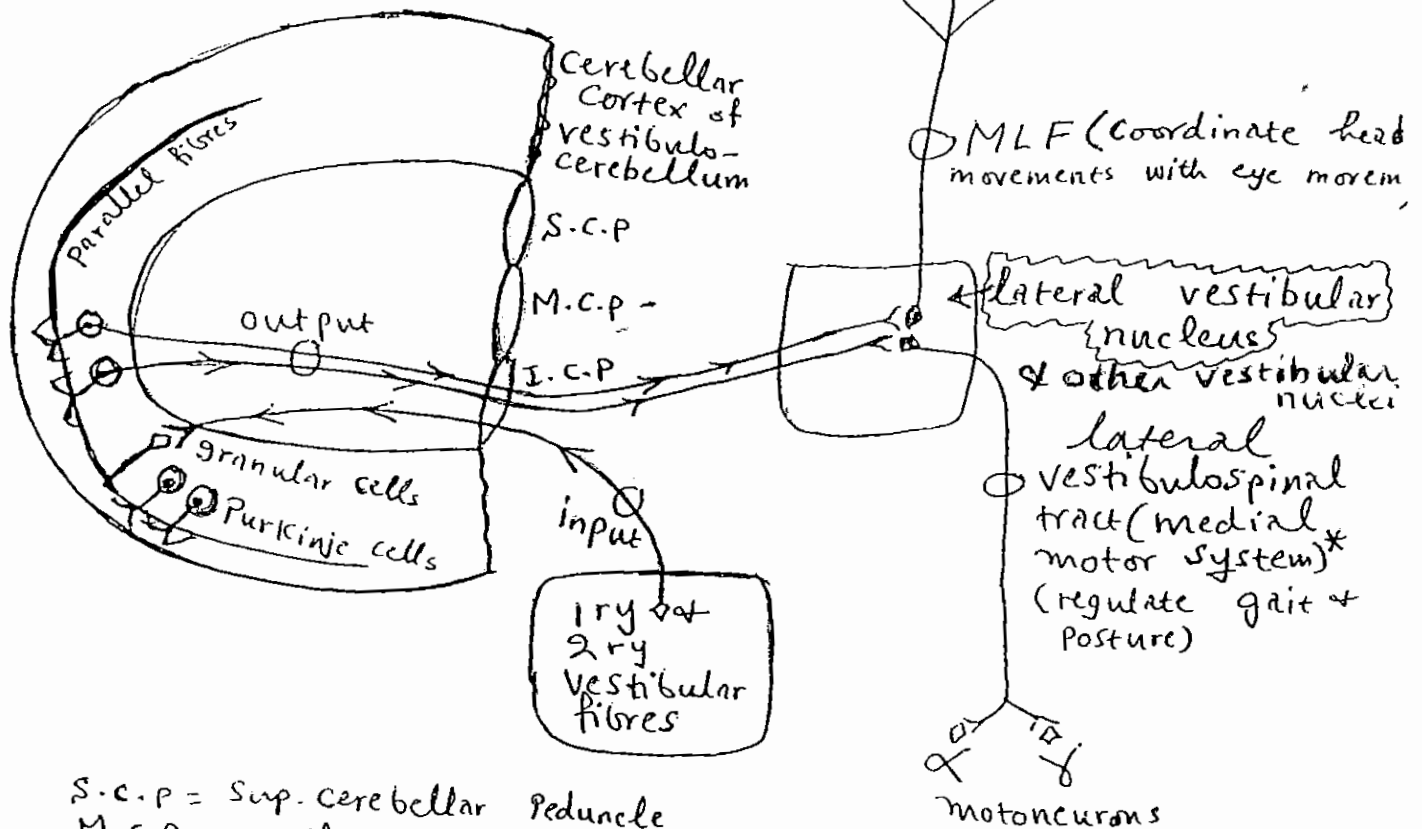 Cerebellar
Cortex of
vestibulo-
cerebellum
Parallel fibres
S.C.P
M.C.P -
I.C.P
output
granular cells
Purkinje cells
input
1ry &
2ry
vestibular
fibres
MLF (Coordinate head
movements with eye movem
lateral vestibular
nucleus
& other vestibular
nuclei
lateral
vestibulospinal
tract (medial
motor system)*
(regulate gait &
Posture)
α γ
motoneurons
S.C.P = Sup. Cerebellar Peduncle